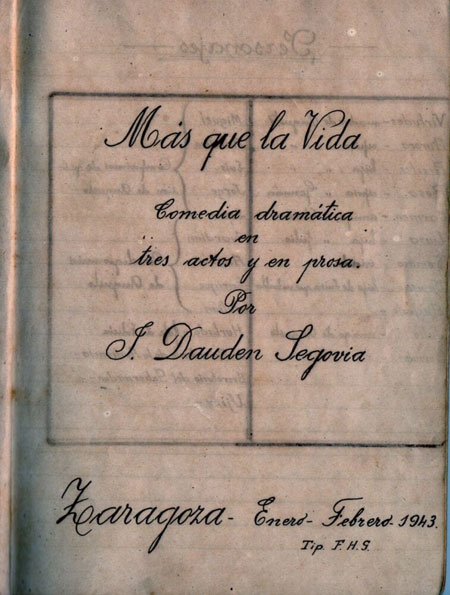 Más que la Vida
Comedia dramática
en
tres actos y en prosa.
Por
J. Dauden Segovia
Zaragoza - Enero - Febrero - 1943.
Tip. F. H. S.